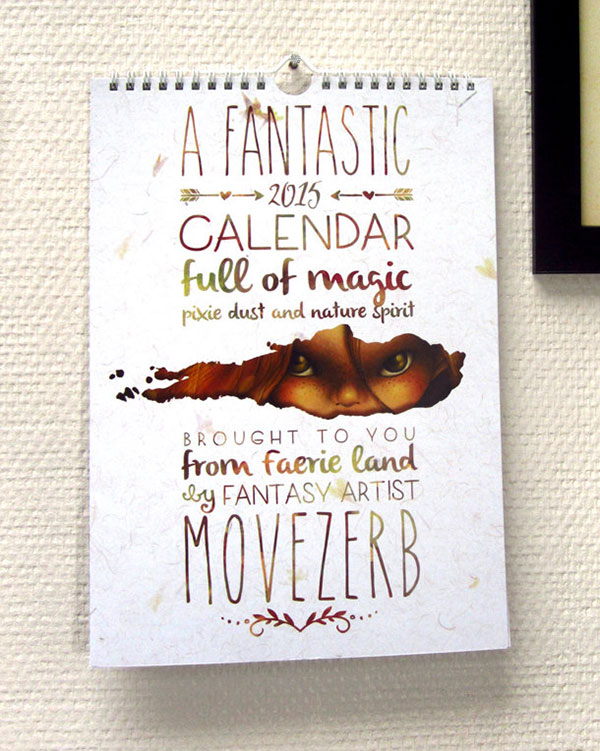 A FANTASTIC
2015
CALENDAR
full of magic
pixie dust and nature spirit
BROUGHT TO YOU
from faerie land
by FANTASY ARTIST
MOVEZERB